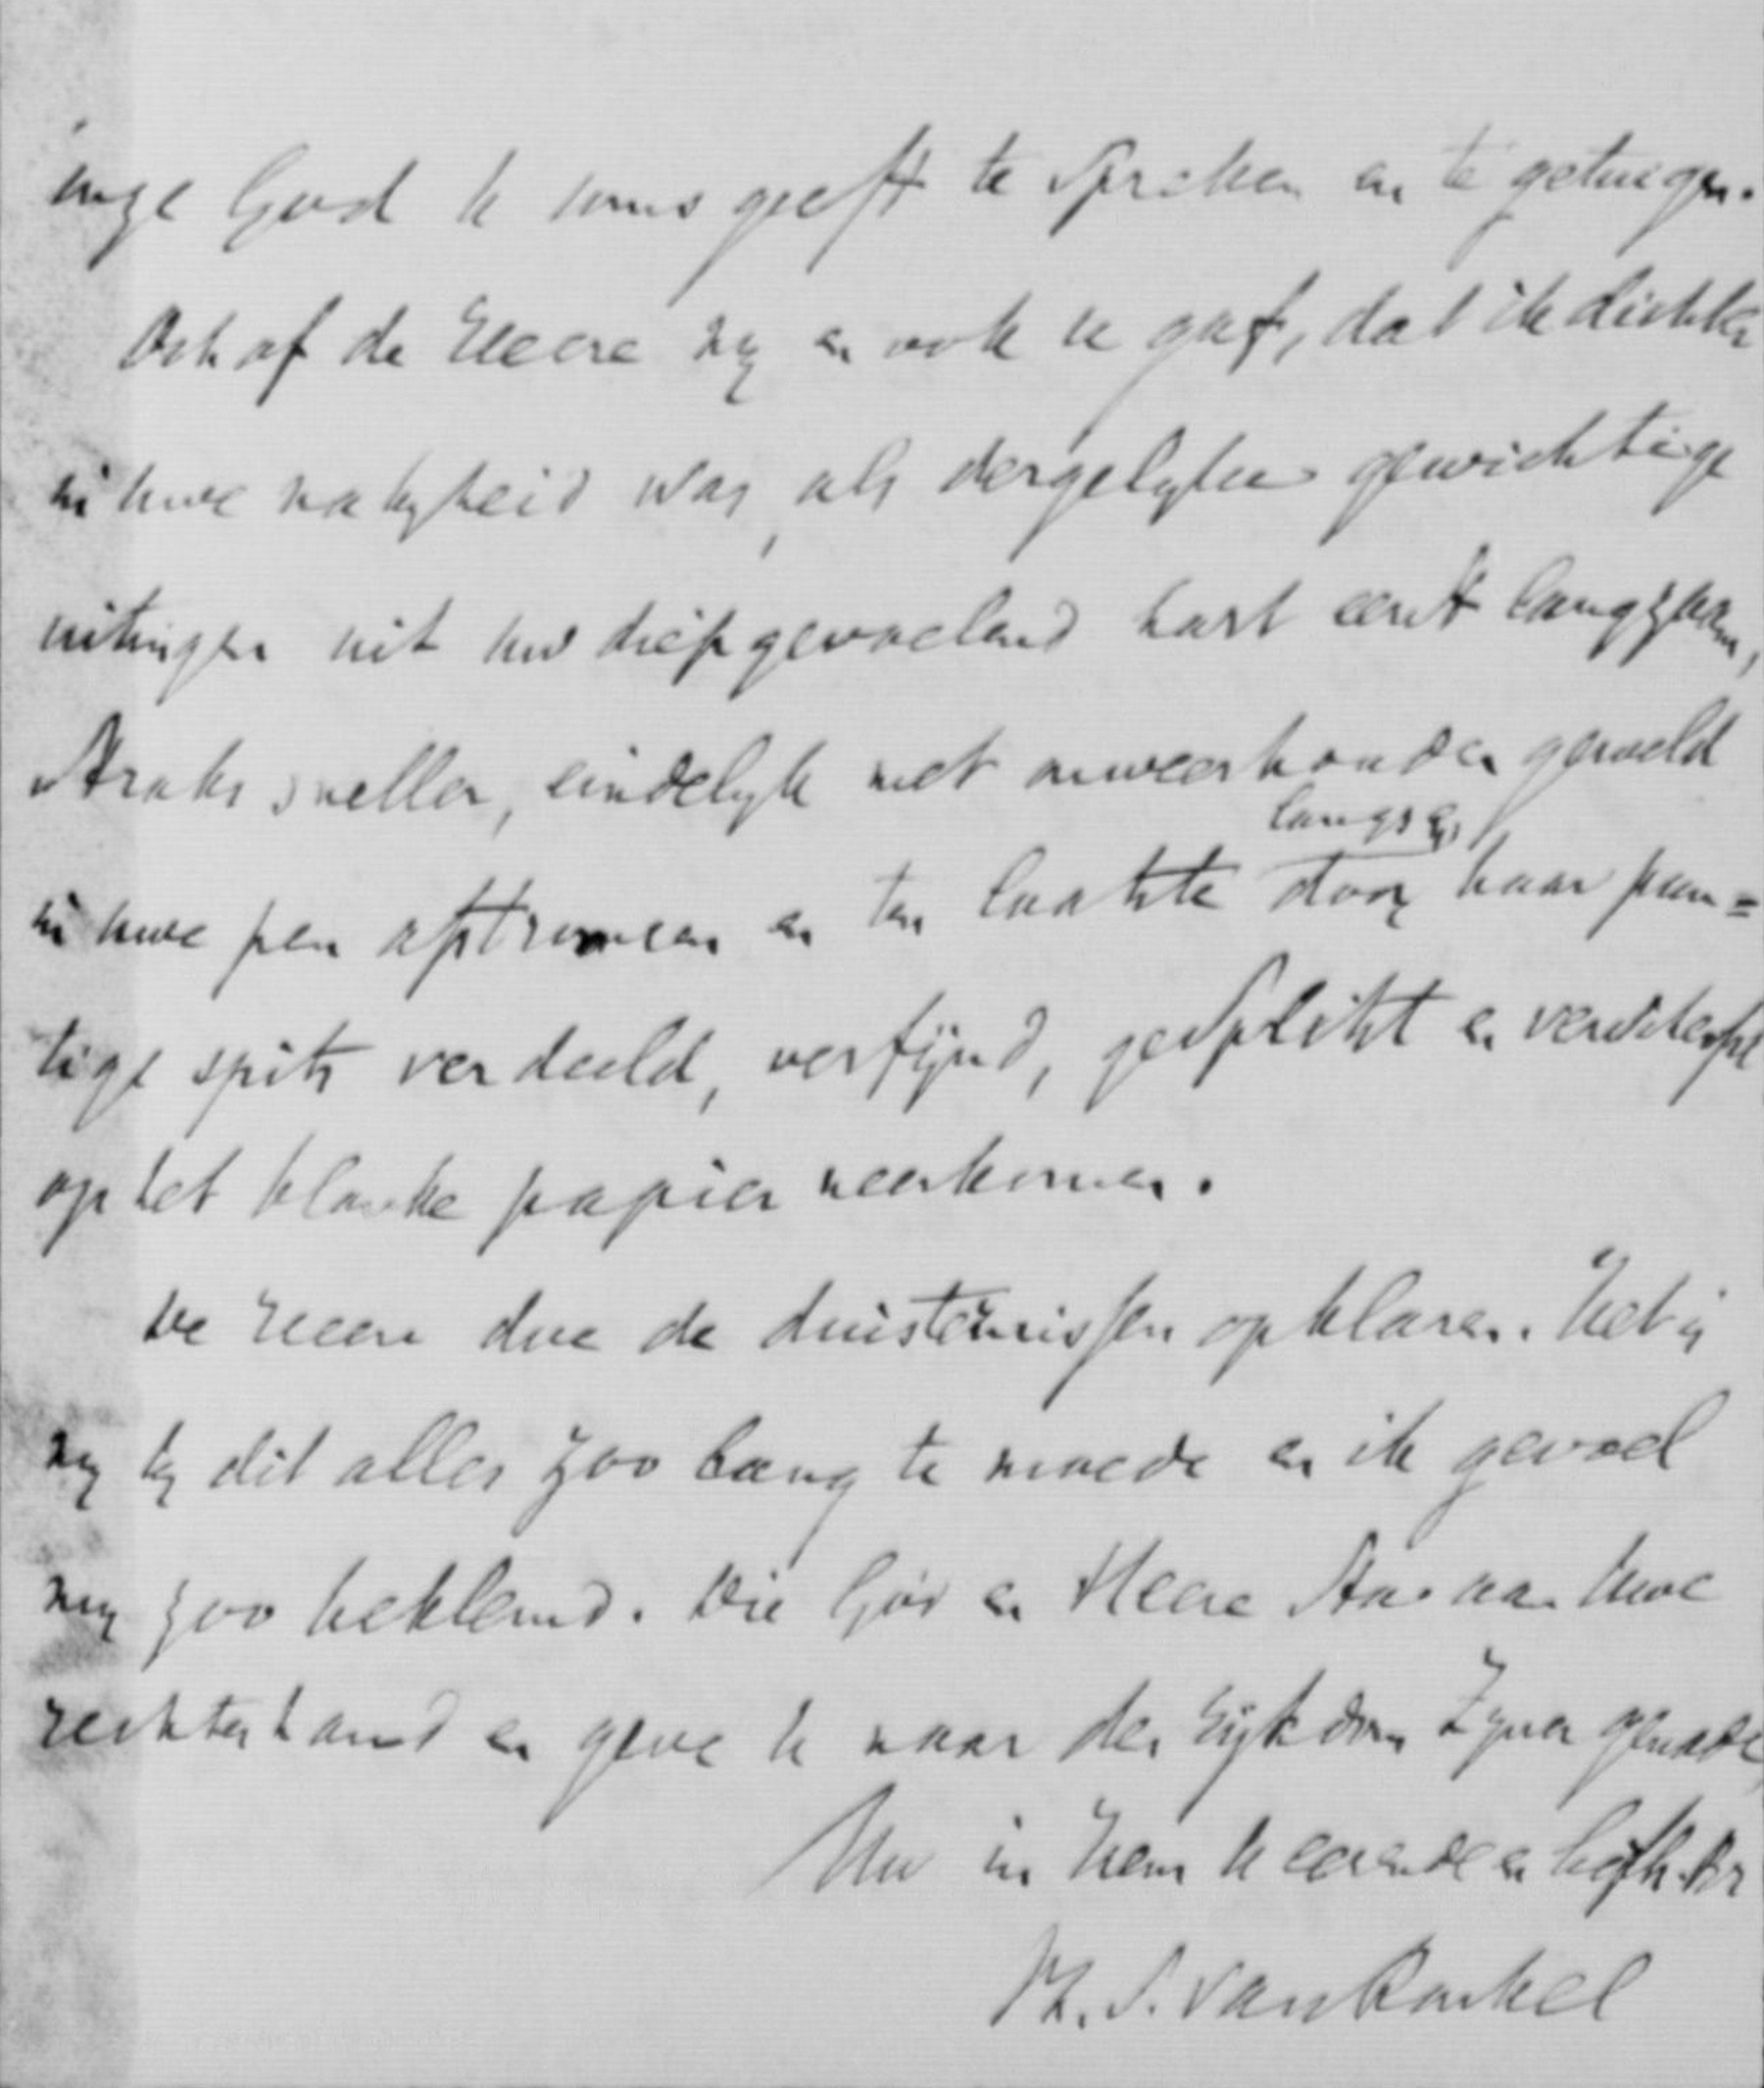 onze God U soms geeft te spreken en te getuigen.
Och of de Heere my er ook U gaf, dat ik dichter
in uwe nabyheid was, als dergelyke gewichtige
uitingen uit uw diepgevoelend hart eerst langzaam,
straks sneller, eindelyk met onweerhouden geweld
langs
in uwe pen afstroomen en ten laatste door haar pun=
tige spits verdeeld, verfijnd, gesplitst en verscherpt
op het blanke papier neerkomen.
De Heere doe de duisternissen opklaren. Het is
my by dit alles zoo bang te moede en ik gevoel
my zoo beklemd. Die God en Heere sta aan Uwe
rechterhand en geve U naar den rijkdom Zyner genade
Uw in Hem U eerende en liefh. Br
Ph. S. van Ronkel